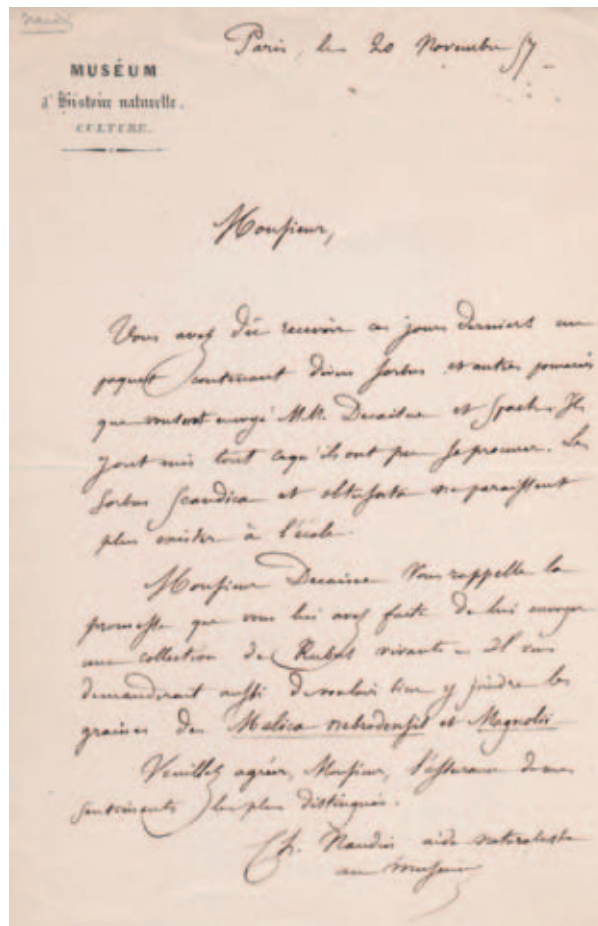 Naudin
Paris, le 20 Novembre 57
MUSÉUM
d'Histoire naturelle.
CULTURE.
Monsieur,
Vous avez dû recevoir ces jours derniers un
paquet contenant divers Sorbus et autres pomacées
que vous ont envoyé MM. Decaisne et Spach. Ils
y ont mis tout ce qu'ils ont pu se procurer. Les
Sorbus Scandica et obtusata ne paraissent
plus exister à l'école.
Monsieur Decaisne vous rappelle la
promesse que vous lui avez faite de lui envoyer
une collection de Rubus vivants. Il vous
demanderait aussi de vouloir bien y joindre les
graines des Melica nebrodensis et Magnolii
Veuillez agréer, Monsieur, l'assurance de mes
sentiments les plus distingués.
Ch. Naudin aide naturaliste
au muséum